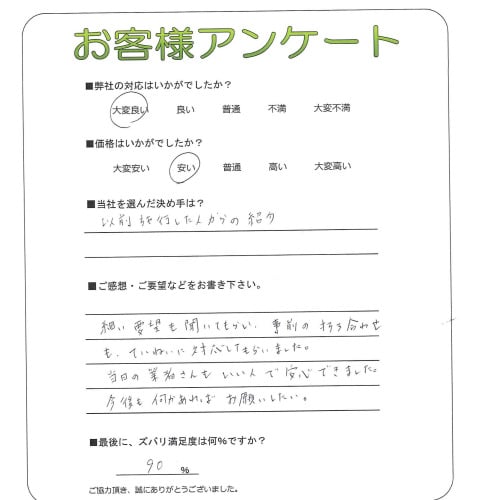 お客様アンケート
■弊社の対応はいかがでしたか?
大変良い 良い 普通 不満 大変不満
■価格はいかがでしたか?
大変安い 安い 普通 高い 大変高い
■当社を選んだ決め手は?
以前 施行した人からの紹介
■ご感想・ご要望などをお書き下さい。
細い要望も聞いてもらい、事前の打ち合わせ
も、ていねいに対応してもらいました。
当日の業者さんもいい人で安心できました。
今後も何かあればお願いしたい。
■最後に、ズバリ満足度は何%ですか?
90 %
ご協力頂き、誠にありがとうございました。